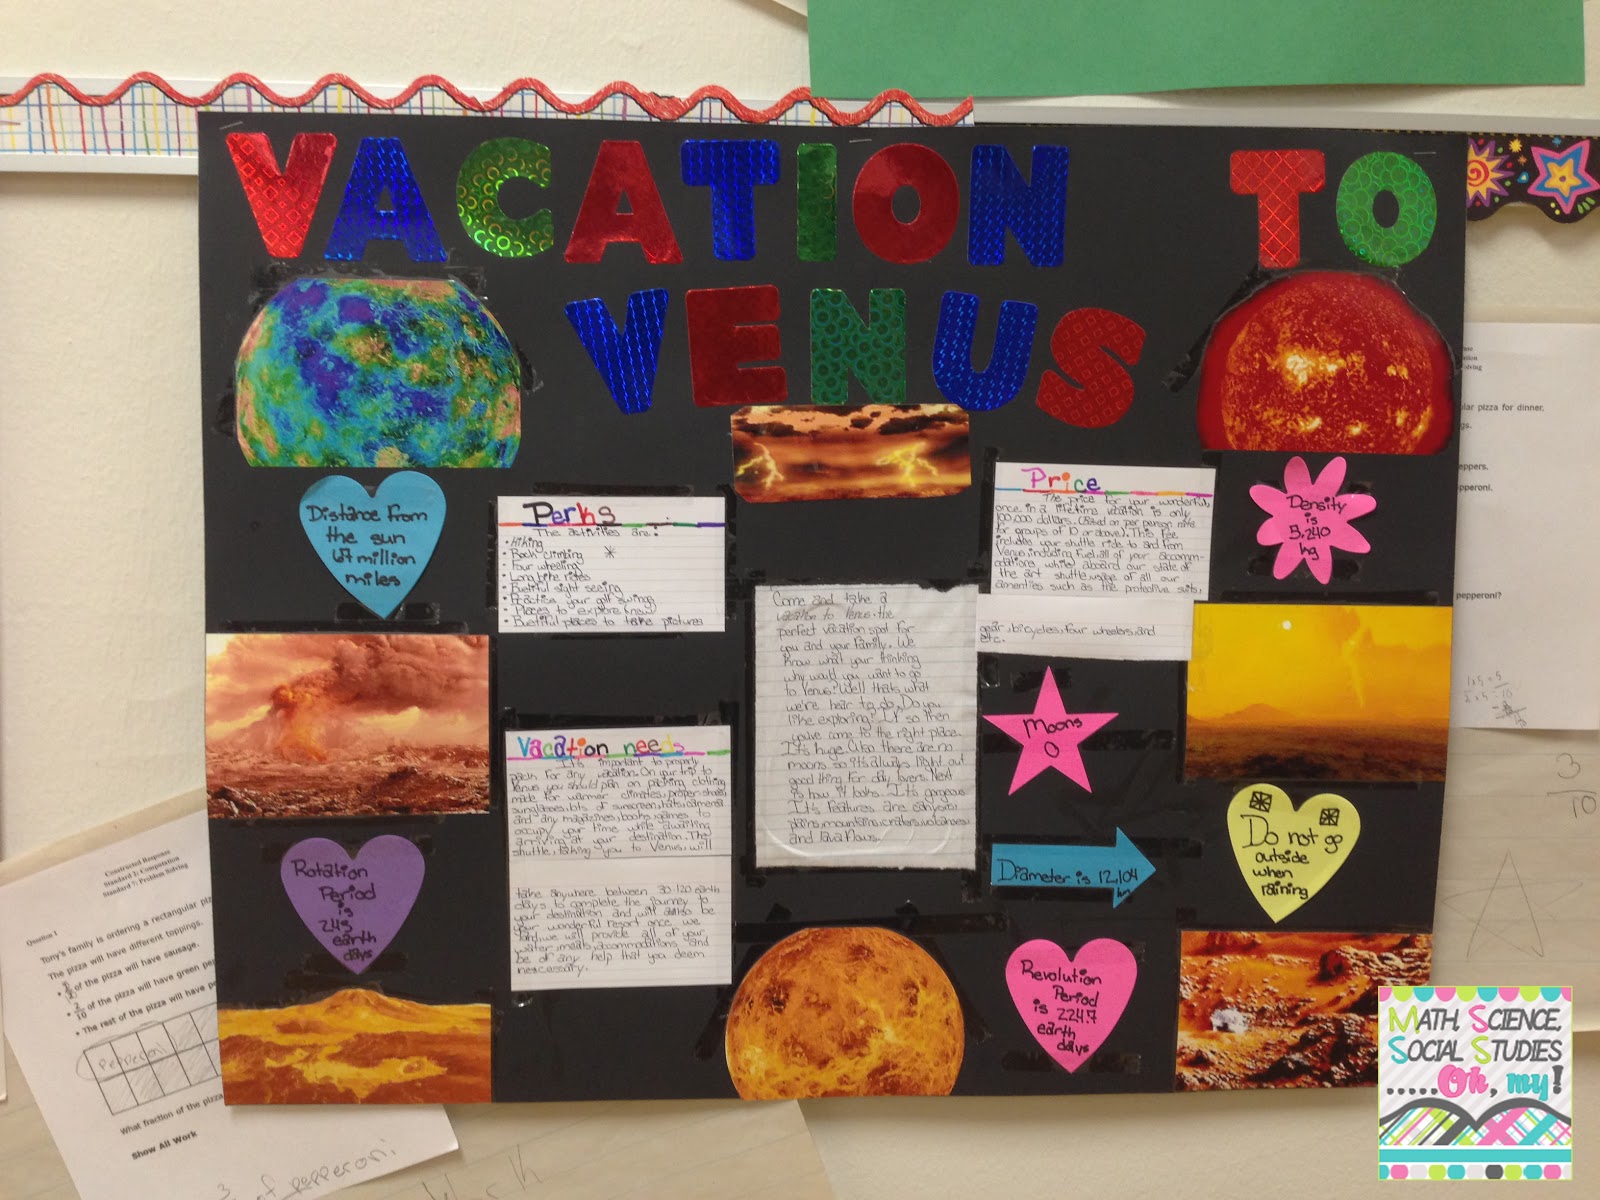 VACATION TO
VENUS
Distance from
the sun
67 million
miles
Perks
The activities are:
• Hiking
• Rock climbing
• Four wheeling
• Long bike rides
• Buetiful sight seeing
• Practise your golf swings
• Places to explore
• Buetiful places to take pictures
Price
The price for your wonderful,
once in a lifetime vacation is only
100,000 dollars. (Based on per person
for groups of 10 or above). This fee
includes your shuttle rids to and from
Venus, including fuel, all of your accomm-
odations while aboard our state of
the art shuttle, usage of all our
amenities such as the protective suits,
gear, bicycles, four wheelers, and
etc.
Density
is
5,240
kg
Come and take a
vacation to Venus. the
perfect vacation spot for
you and your family. We
know what your thinking
why would you want to go
to Venus? Well thats what
we're hear to do. Do you
like exploring? If so then
youve come to the right place.
It's huge. Also there are no
moons so it's always light out
good thing for day lovers. Next
is how it looks. It's gorgeous
It's features are canyons
plains, mountains, craters, volcanoes
and lava flows.
Moons
0
Vacation needs
It's important to properly
pack for any vacation. On your trip to
Venus you should plan on packing clothing
made for warmer climates, proper shoes,
sunglasses, lots of sunscreen, hats, camera
and any magazines, books, games to
occupy your time while awaiting
arriving at your destination. The
shuttle, taking you to Venus, will
take anywhere between 30-120 earth
days to complete the journey to
your destination and will also be
your wonderful resort once we
land, we will provide all of your
water, meals, accommodations and
be of any help that you deem
nescessary.
Rotation
Period
is
243
earth
days
Diameter is 12,104
km
Do not go
outside
when
raining
Revolution
Period
is 224.7
earth
days
Constructed Response
Standard 2: Computation
Standard 7: Problem Solving
Question 1
Tony's family is ordering a rectangular
The pizza will have different toppings.
of the pizza will have sausage.
of the pizza will have green
• The rest of the pizza will have
Pepperoni
What fraction of the pizza
Show All Work
of pepperoni.
Work
pizza for dinner.
pepperoni?
3
10
MATH, SCIENCE,
SOCIAL STUDIES
.....Oh, my!